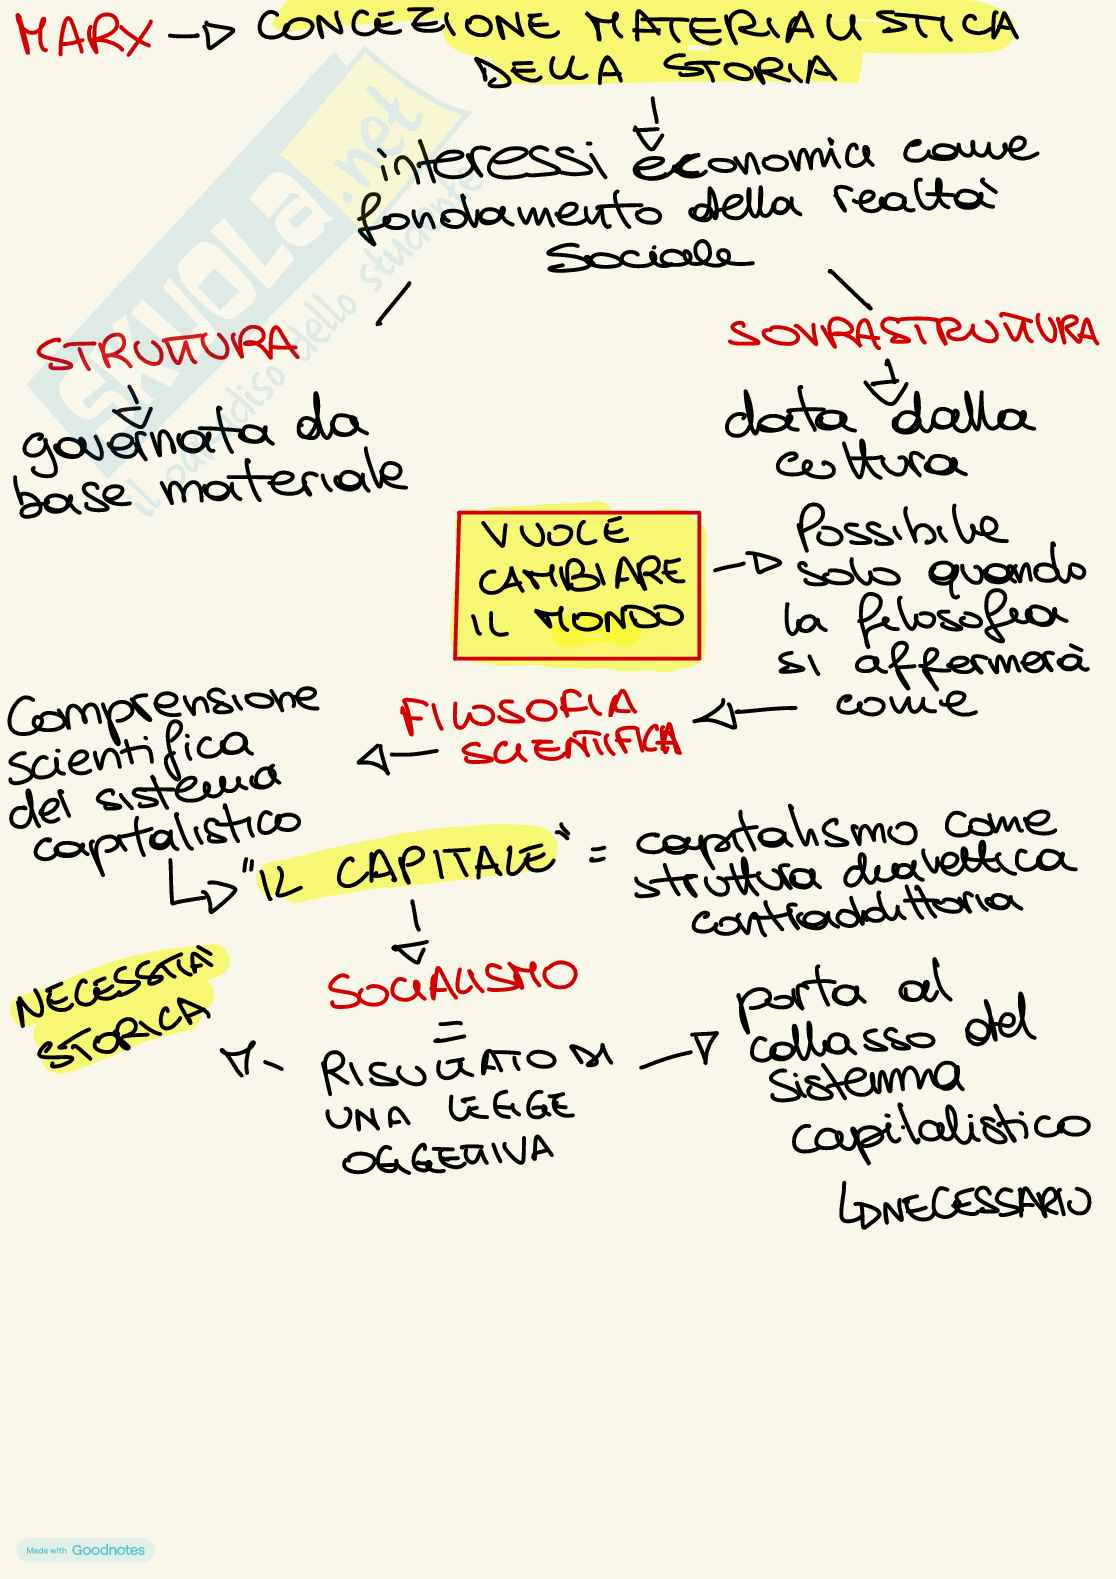 MARX → CONCEZIONE MATERIALISTICA
DELLA STORIA
interessi economici come
fondamento della realtà
sociale
STRUTTURA
governata da
base materiale
SOVRASTRUTTURA
data dalla
cultura
VUOLE
CAMBIARE
IL MONDO
Possibile
solo quando
la filosofia
si affermerà
come
FILOSOFIA
SCIENTIFICA
Comprensione
scientifica
del sistema
capitalistico
"IL CAPITALE" = capitalismo come
struttura dialettica
contraddittoria
SOCIALISMO
=
RISULTATO DI
UNA LEGGE
OGGETTIVA
NECESSITÀ
STORICA
porta al
collasso del
sistema
capitalistico
NECESSARIO
SKUOLA.net
il paradiso dello studente
Made with Goodnotes